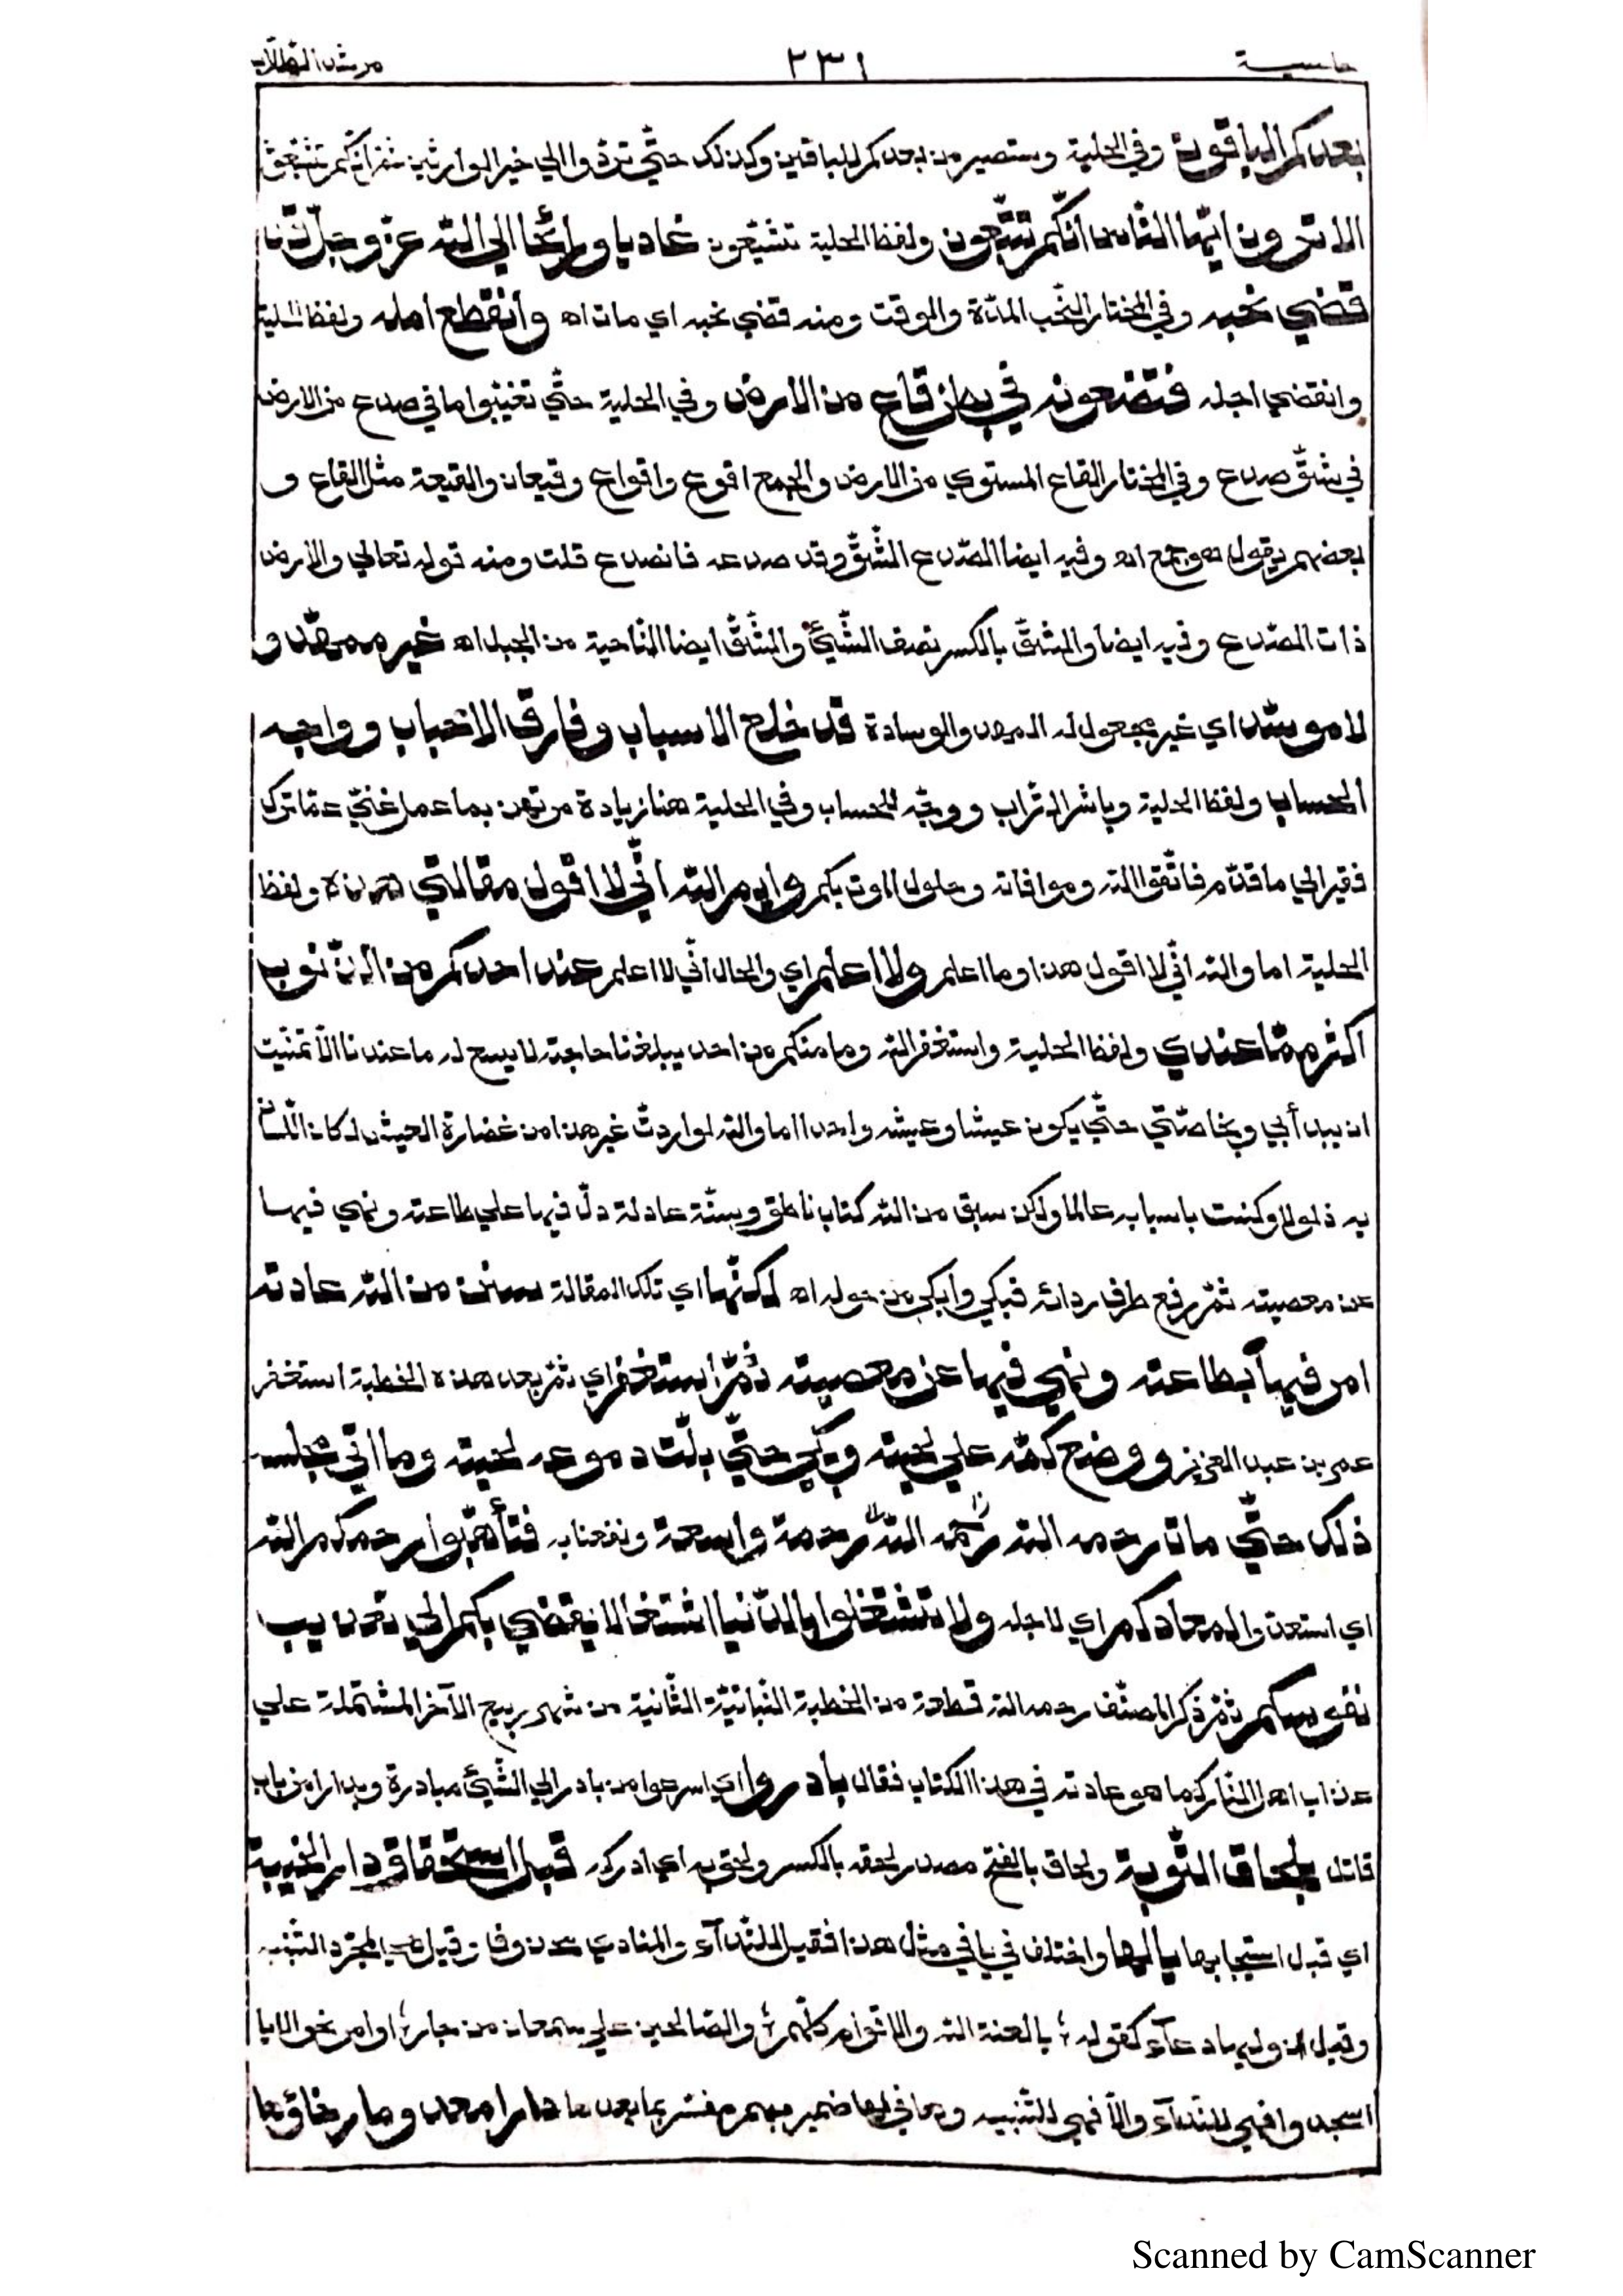 حاسية ٢٣١ مرشد الطلاب
بعدكم الباقون وفي الحلية وستصير من بعدكم للباقين وكذلك حتّي تردّ واالي خير الوارثين ثمّ انّكم تشيّعون
الا ترون ايّها النّاس انّكم تشيّعون ولفظ الحلية تشيّعون غاديا ورائحا الي اللّه عزّ وجلّ قد
قضي نحبه وفي المختار النّحب المدّة والوقت ومنه قضي نحبه اي مات اه وانقطع امله ولفظ الحلية
وانقضي اجله فتضعونه في بطن قاع من الارض وفي الحلية حتّي تغيّبوا ما في صدع من الارض
في شقّ صدع وفي المختار القاع المستوي من الارض والجمع اقوع واقواع وقيعان والقيعة مثل القاع و
بعضهم يقول هو جمع اه وفيه ايضا الصّدع الشّقّ وقد صدعه فانصدع قلت ومنه قوله تعالي والارض
ذات الصّدع وفيه ايضا والشقّ بالكسر نصف الشّيئ والشّقّ ايضا النّاحية من الجبل اه غير ممهّد و
لا موسّد اي غير مجعول له المهد والوسادة قد خلع الاسباب وفارق الاحباب وواجه
الحساب ولفظ الحلية وباشر التراب ووجّه للحساب وفي الحلية هنا زيادة مرتهن بما عمل غنيّ عمّا ترك
فقير الي ما قدّم فاتّقوا اللّه وموافاته وحلول الموت بكم وايم اللّه انّي لا اقول مقالتي هذه ولفظ
الحلية اما واللّه انّي لا اقول هذا وما اعلم ولا اعلم اي والحال انّي لا اعلم عند احدكم من الذّنوب
اكثر ممّا عندي ولفظ الحلية واستغفر اللّه وما منكم من احد يبلغنا حاجته لا يسع له ما عندنا الاّ تمنّيت
ان يبدأ بي وبخاصّتي حتّي يكون عيشنا وعيشه واحدا اما واللّه لو اردتّ غير هذا من غضارة العيش لكان اللّسان
به ذلولا وكنت باسبابه عالما ولكن سبق من اللّه كتاب ناطق وسنّة عادلة دلّ فيها علي طاعته ونهي فيها
عن معصيته ثمّ رفع طرف ردائه فبكي وابكي من حوله اه لكنّها اي تلك المقالة سنن من اللّه عادته
امر فيها بطاعته ونهي فيها عن معصيته ثمّ استغفر اي ثمّ بعد هذه الخطبة استغفر
عمر بن عبد العزيز ووضع كمّه علي لحيته وبكي حتّي بلّت دموعه لحيته وما اتي مجلسه
ذلك حتّي مات رحمه اللّه رحمه اللّه رحمة واسعة ونفعنا به فتأهّبوا رحمكم اللّه
اي استعدّوا لمعادكم اي لاجله ولا تشتغلوا بالدّنيا اشتغالا يقضي بكم الي تعذيب
نفوسكم ثمّ ذكر المصنّف رحمه اللّه قطعة من الخطبة النّباتيّة الثّانية من شهر ربيع الآخر المشتملة علي
عذاب اهل النّار كما هو عادته في هذا الكتاب فقال بادروا اي اسرعوا من بادر الي الشّيئ مبادرة وبدارا من باب
قاتل لحاق التّوبة ولحاق بالفتح مصدر لحقه بالكسر ولحق به اي ادركه قبل استحقاق دار الخيبة
اي قبل استيجابها يالها واختلف في يا في مثل هذا فقيل للنّدآء والمنادي محذوف وقيل هي لمجرّد التّنبيه
وقيل ان وليها دعآء كقوله يا لعنة اللّه والاقوام كلّهم والصّالحين علي سمعان من جار او امر نحو الا يا
اسجدوا فهي للنّدآء والاّ فهي للتّنبيه وها في لها ضمير مبهم مفسّر بما بعدها دارا معدوما رخاؤها
Scanned by CamScanner